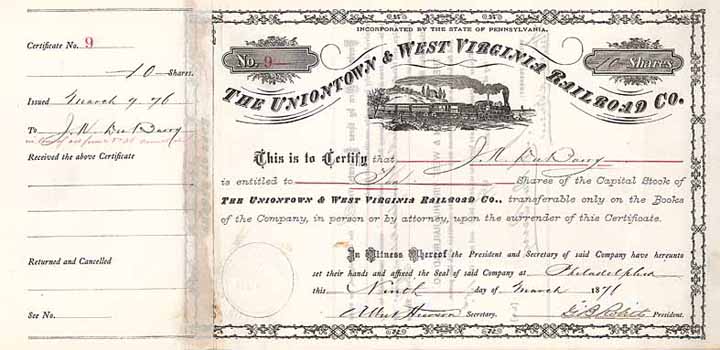 Certificate No. 9
10 Shares.
Issued March 9 76
To J. N. DuBarry
Received the above Certificate
Returned and Cancelled
See No.
INCORPORATED BY THE STATE OF PENNSYLVANIA.
No. 9
10 Shares
THE UNIONTOWN & WEST VIRGINIA RAILROAD CO.
This is to Certify that J. N. DuBarry
is entitled to Ten Shares of the Capital Stock of
THE UNIONTOWN & WEST VIRGINIA RAILROAD CO., transferable only on the Books
of the Company, in person or by attorney, upon the surrender of this Certificate.
In Witness Whereof the President and Secretary of said Company have hereunto
set their hands and affixed the Seal of said Company at Philadelphia
this Ninth day of March 1876
Albert Hewson Secretary. G. B. Roberts President.